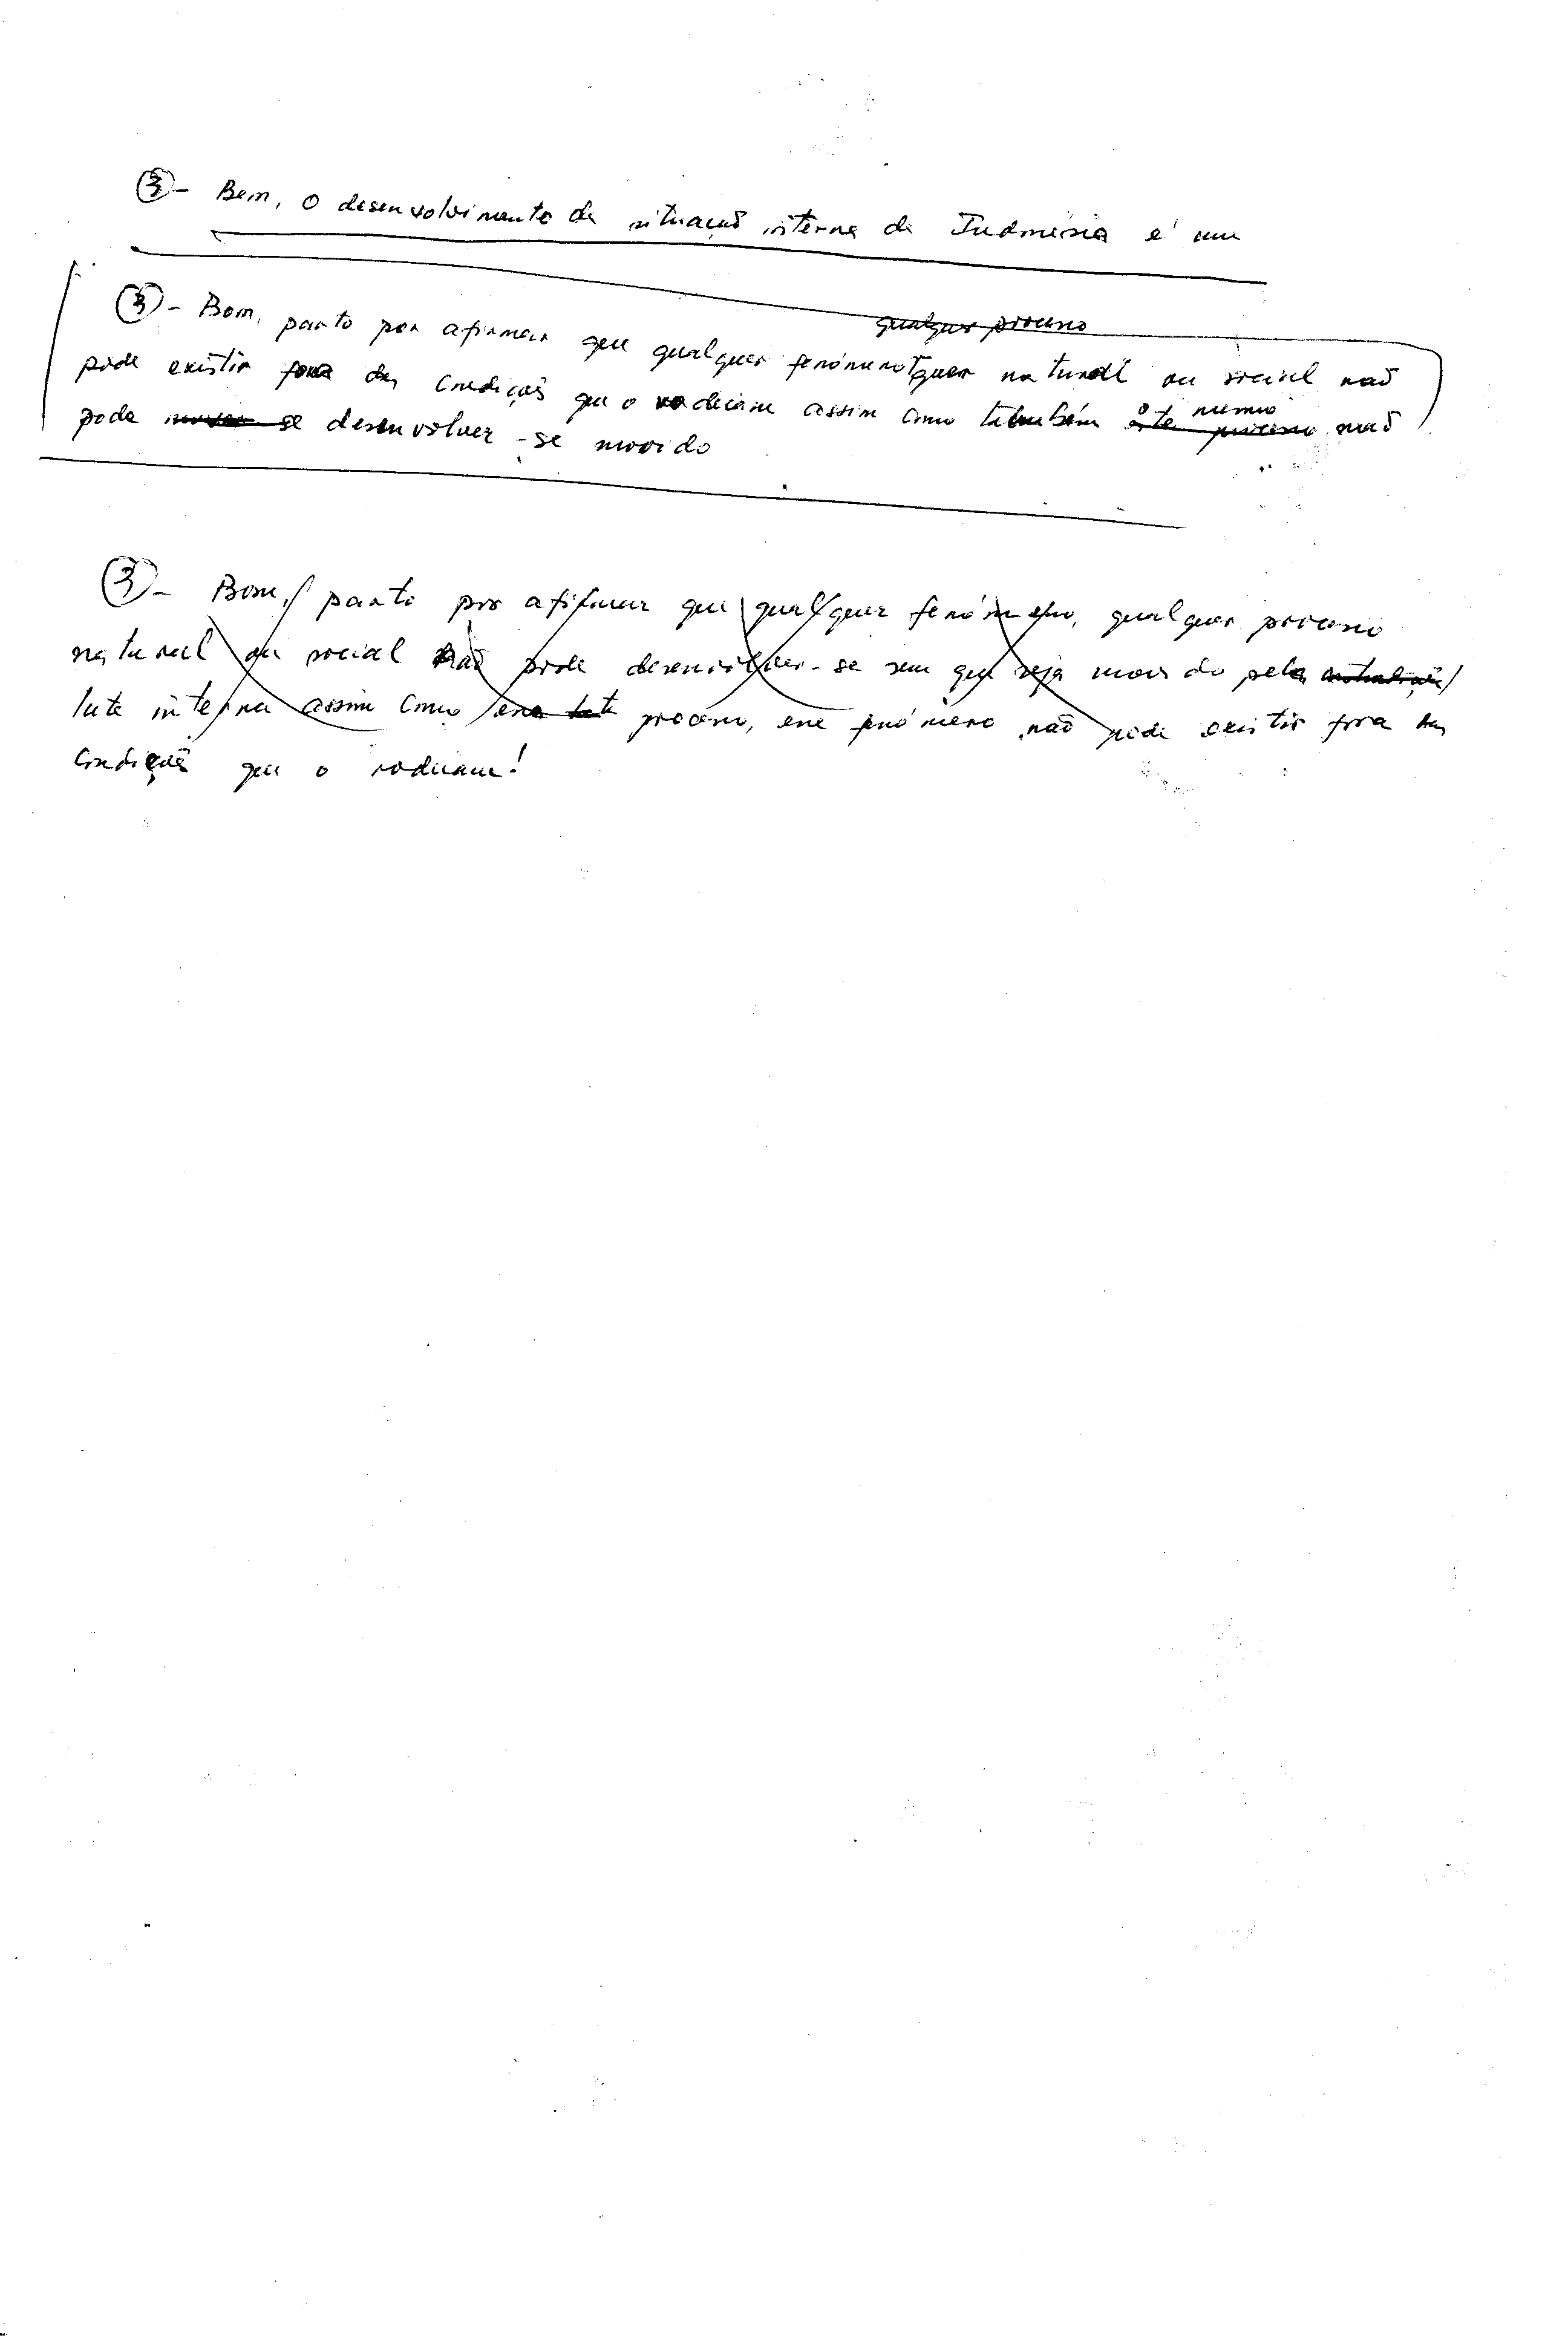 ③- Bem, o desenvolvimento da situação interna da Indonésia é um
qualquer processo
③- Bom, parto por afirmar que qualquer fenómeno quer natural ou social não
pode existir fora das condições que o rodeiam assim como também o mesmo não
pode se desenvolver-se movido
③- Bom, parto por afirmar que qualquer fenómeno, qualquer processo
natural ou social não pode desenvolver-se sem que seja movido pela
luta interna assim como processo, esse fenómeno não pode existir fora das
condições que o rodeiam!